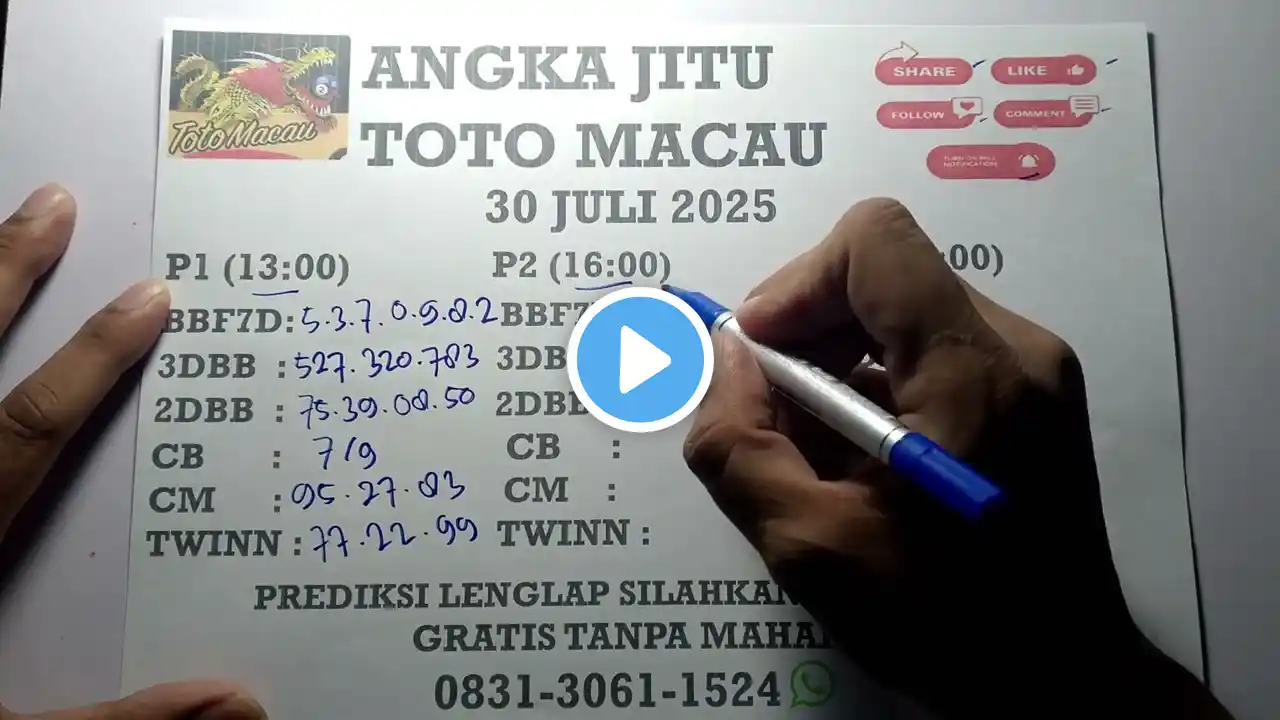 Toto Macau
ANGKA JITU
TOTO MACAU
30 JULI 2025
SHARE
LIKE
FOLLOW
COMMENT
TURN ON BELL
NOTIFICATION
P1 (13:00)
BBF7D: 5.3.7.0.9.8.2
3DBB : 527.320.783
2DBB : 75.39.08.50
CB : 7/9
CM : 95.27.83
TWINN : 77.22.99
P2 (16:00)
3DB
CB :
CM :
TWINN :
:00)
PREDIKSI LENGLAP SILAHKAN
GRATIS TANPA
0831-3061-1524